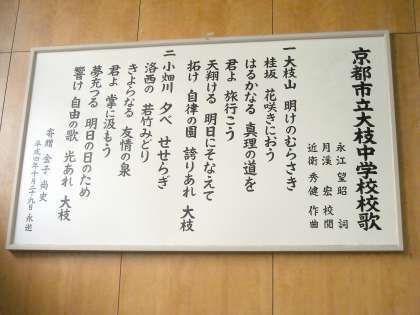 京都市立大枝中学校校歌
永江 望昭 詞
月溪 宏 校閲
近衛 秀健 作曲
一 大枝山 明けのむらさき
桂坂 花咲きにおう
はるかなる 真理の道を
君よ 旅行こう
天翔ける 明日にそなえて
拓け 自律の園 誇りあれ 大枝
二 小畑川 夕べ せせらぎ
洛西の 若竹みどり
きよらなる 友情の泉
君よ 掌に汲もう
夢充つる 明日の日のため
響け 自由の歌 光あれ 大枝
寄贈 金子尚史
平成四年十月二十九日 永逝